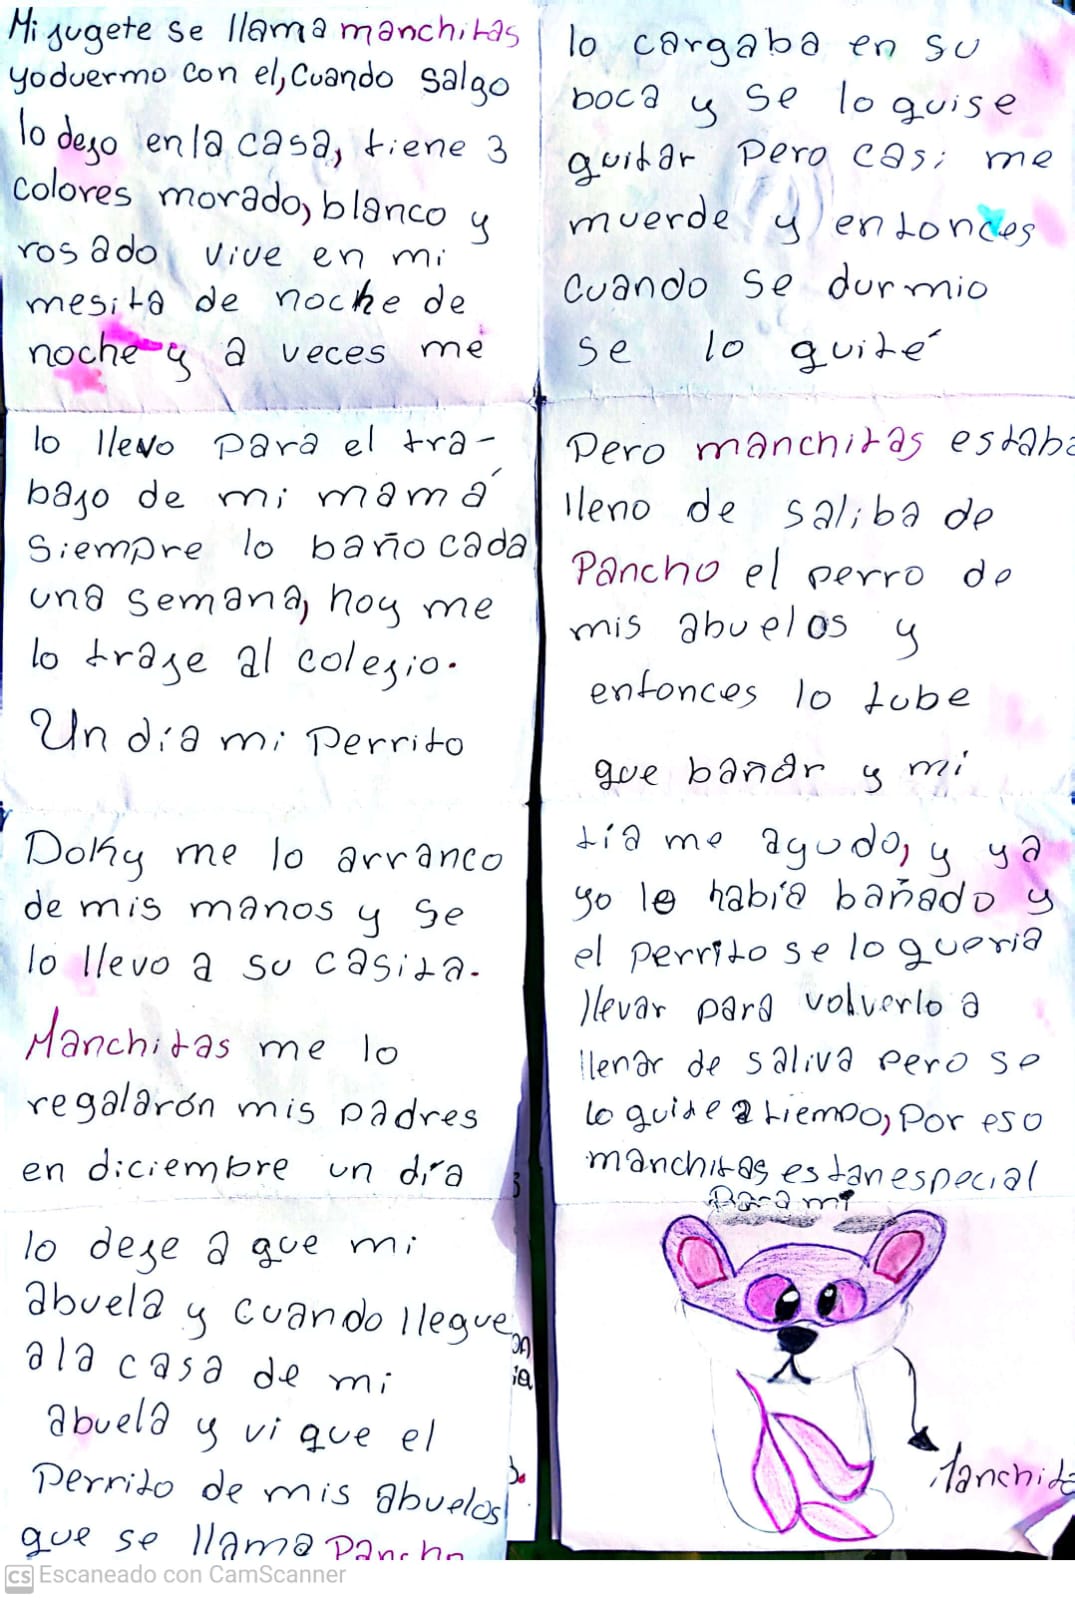 Mi jugete se llama manchitas
yo duermo con el, Cuando salgo
lo dejo en la casa, tiene 3
colores morado, blanco y
rosado vive en mi
mesita de noche de
noche y a veces me
lo llevo para el tra-
bajo de mi mamá
Siempre lo baño cada
una semana, hoy me
lo traje al colegio.
Un día mi Perrito
Doky me lo arranco
de mis manos y se
lo llevo a su casita.
Manchitas me lo
regalarón mis padres
en diciembre un día
lo deje a que mi
abuela y cuando llegue
a la casa de mi
abuela y vi que el
Perrito de mis abuelos
que se llama Pancho
lo cargaba en su
boca y se lo quise
quitar Pero casi me
muerde y entonces
Cuando se durmio
se lo quité
Pero manchitas estaba
lleno de saliba de
Pancho el perro de
mis abuelos y
entonces lo tube
que bañar y mi
tía me ayudo, y ya
yo lo había bañado y
el perrito se lo queria
llevar para volverlo a
llenar de saliva pero se
lo quite a tiempo, Por eso
manchitas es tan especial
Para mi
Manchita
CS Escaneado con CamScanner